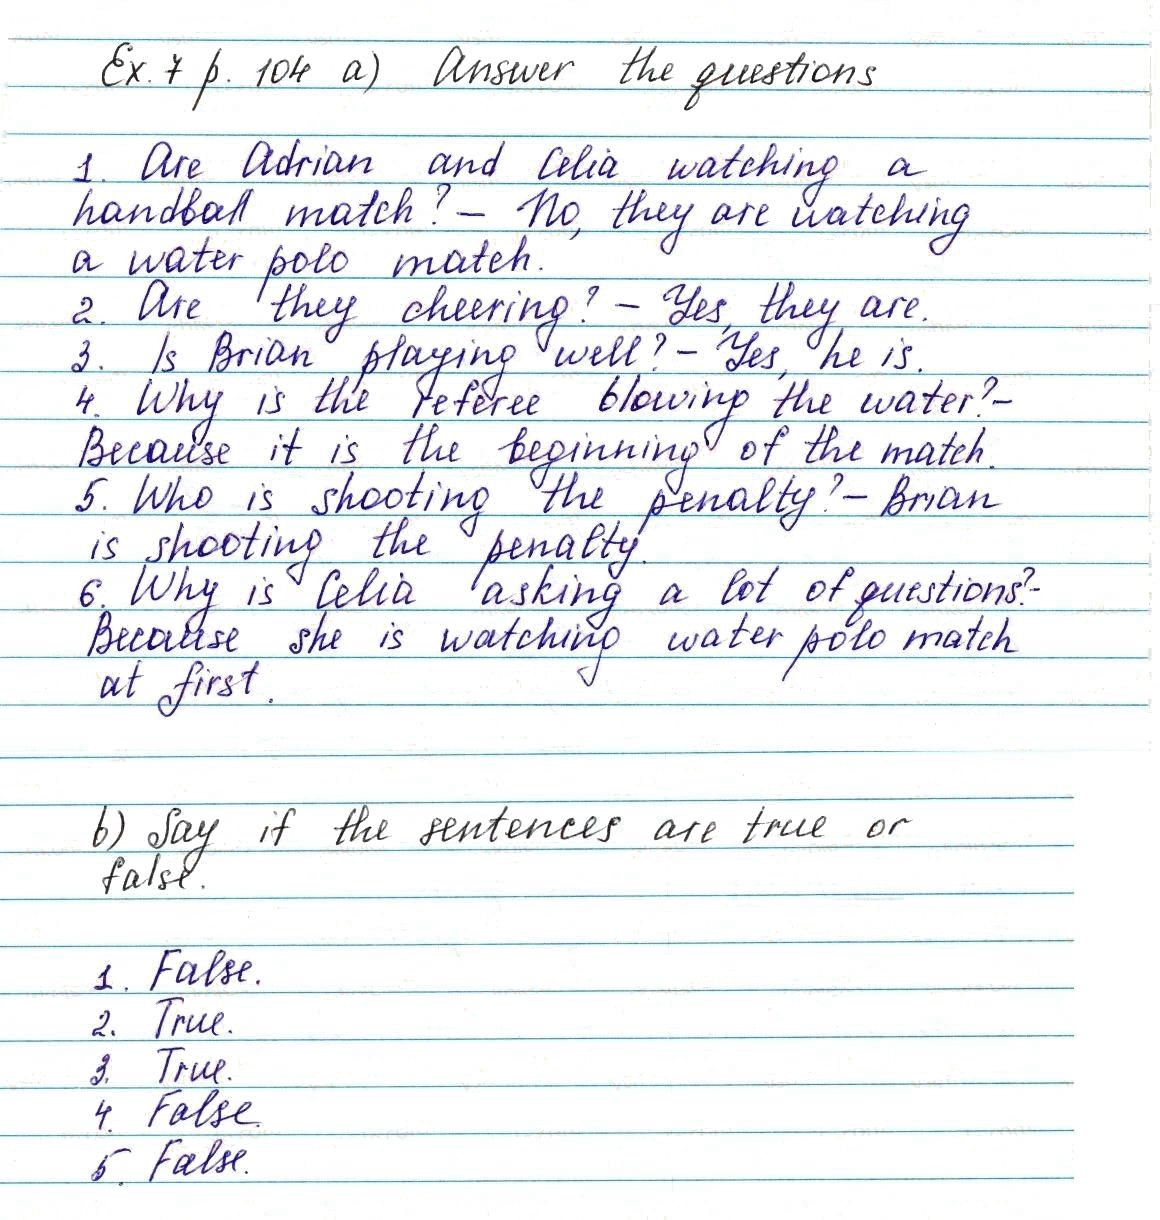 Ex. 7 p. 104 a) Answer the questions
1. Are Adrian and Celia watching a
handball match? – No, they are watching
a water polo match.
2. Are they cheering? – Yes, they are.
3. Is Brian playing well? – Yes, he is.
4. Why is the referee blowing the water? –
Because it is the beginning of the match.
5. Who is shooting the penalty? – Brian
is shooting the penalty.
6. Why is Celia asking a lot of questions? -
Because she is watching water polo match
at first.
b) Say if the sentences are true or
false.
1. False.
2. True.
3. True.
4. False.
5. False.